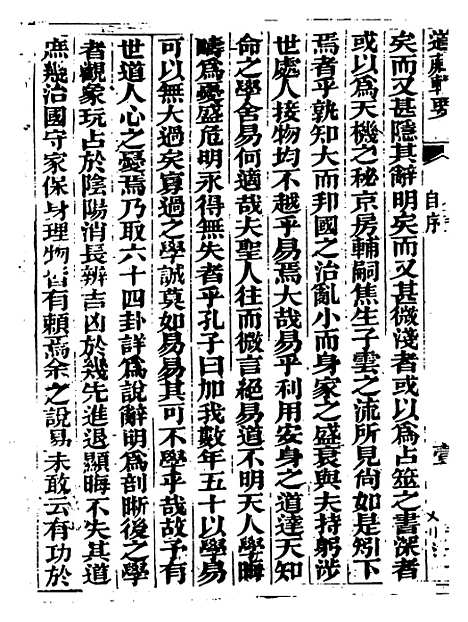 自序
矣而又甚隱其辭明矣而又甚微淺者或以爲占筮之書深者
或以爲天機之秘京房輔嗣焦生子雲之流所見尚如是矧下
焉者乎孰知大而邦國之治亂小而身家之盛衰與夫持躬涉
世處人接物均不越乎易焉大哉易乎利用安身之道達天知
命之學舍易何適哉夫聖人往而微言絕易道不明天人學晦
疇爲憂盛危明永得無失者乎孔子曰加我數年五十以學易
可以無大過矣寡過之學誠莫如易易其可不學乎哉故予有
世道人心之憂焉乃取六十四卦詳爲說辭明爲剖晰後之學
者觀象玩占於陰陽消長辨吉凶於幾先進退顯晦不失其道
庶幾治國守家保身理物皆有賴焉余之說易未敢云有功於